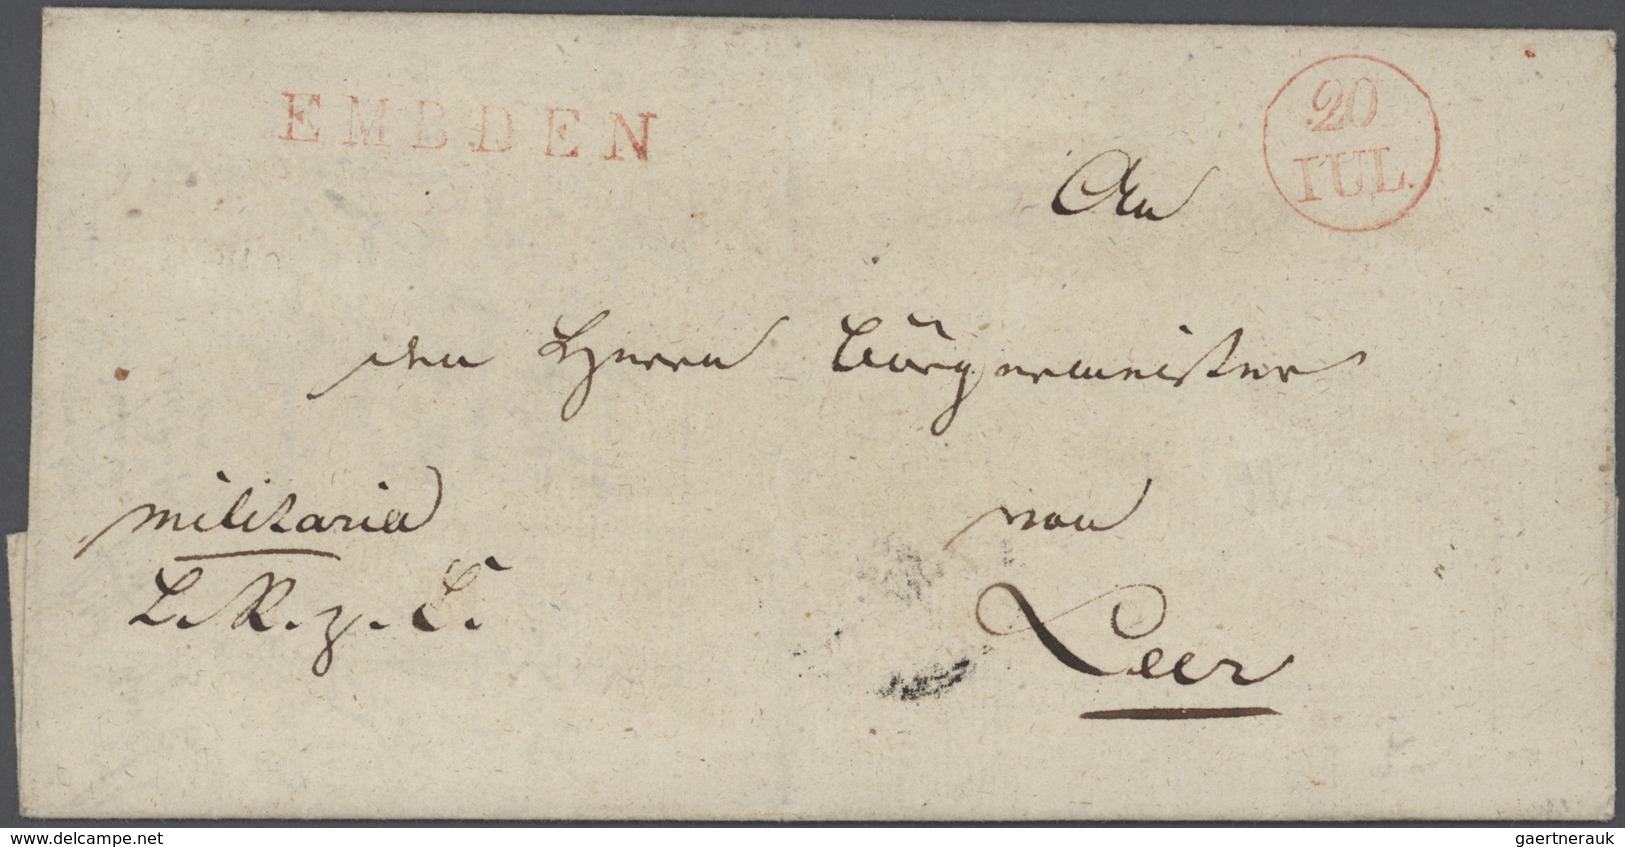 EMBDEN
20
IUL.
An
den Herrn Bürgermeister
militaria
von
L. R. z. E.
Leer
delcampe.net
gaertnerauk